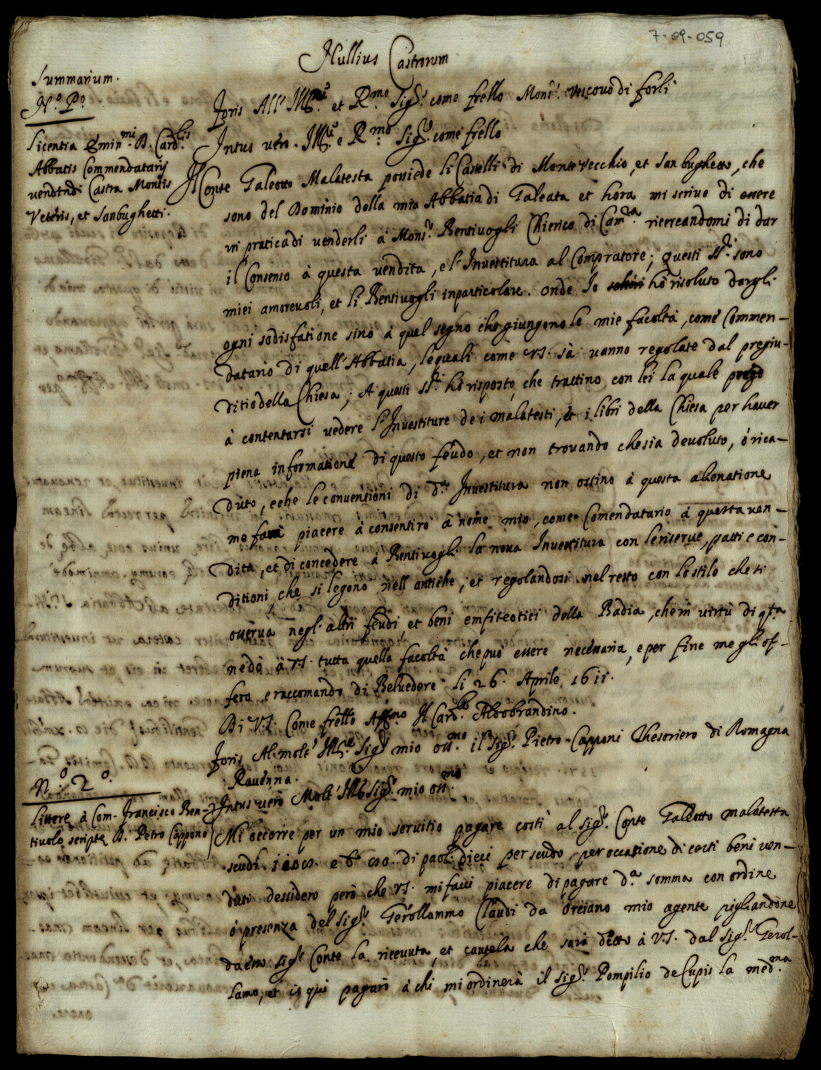 7-09-059
Nullius Castrorum
Summarium.
N.º P.º
Licentia Emin.mi D. Card.lis
Abbatis Commendatarij
vendendi Castra Montis
Veteris, et Sanbughetti.
Foris All' Ill.mo et R.mo Sig.r come frello Mons.r Vescovo di forlì
Intus vero. Ill.mo e R.mo Sig.r come frello
Il Conte Galeotto Malatesta possiede li Castelli di Monte Vecchio, et San bughetto, che
sono del Dominio della mia Abbatia di Galeata et hora mi scrive di essere
in pratica di venderli à Mons.r Bentivogli Chierico di Cam.ra ricercandomi di dar
il Consenso à questa vendita, e l'Investitura al Compratore; questi SS.ri sono
miei amorevoli, et li Bentivogli in particolare. onde Io hò risoluto dargli
ogni sodisfatione sino à quel segno che giungono le mie facoltà, come Commen-
datario di quell'Abbatia, le quali come VS. sà vanno regolate dal pregiu-
ditio della Chiesa; A questi SS.ri hò risposto, che trattino con lei la quale prego
à contentarsi vedere l'Investiture de i malatesti, et i libri della Chiesa per haver
piena informatione di questo feudo, et non trovando che sia devoluto, ò rica-
duto, e che le conventioni di d.a Investitura non ostino à questa alienatione
mo farà piacere à consentire à nome mio, come Comendatario à questa ven-
dita, et di concedere à Bentivogli la nova Investitura con le riserve, patti e con-
ditioni, che si legono nell'antiche, et regolandosi nel resto con lo stilo che si
osserva negl'altri feudi, et beni emfiteotici della Badia, che in virtù di q.ta
ne dò à VS. tutta quella facoltà che può essere necessaria, e per fine me gli of-
fero, e raccomando di Belvedere li 26. Aprile 1611.
Di VS. Come frello Aff.mo Il Card.le Aldobrandino.
N.º 2.º
Littere à Com. Francisco Ben-
tivolo scripte D. Petro Cappono
Foris Al molt' Ill.re Sig.r mio oss.mo il Sig.r Pietro Capponi Thesoriero di Romagna
Ravenna.
Intus vero Molt' Ill.re Sig.r mio oss.mo
Mi occorre per un mio servitio pagare costì al sig.r Conte Galeotto malatesta
scudi di paoli dieci per scudo, per occasione di certi beni ven-
duti dessidero però che VS. mi facci piacere di pagare d.a somma con ordine
ò presenza del sig.r Gerollammo Claudi da Orciano mio agente pigliandone
da esso sig.r Conte la ricevuta, et cautela che sarà detto à VS. dal sig.r Gerol-
lamo, et io qui pagarò à chi mi ordinerà il sig.r Pompilio de Cupis la med.ma